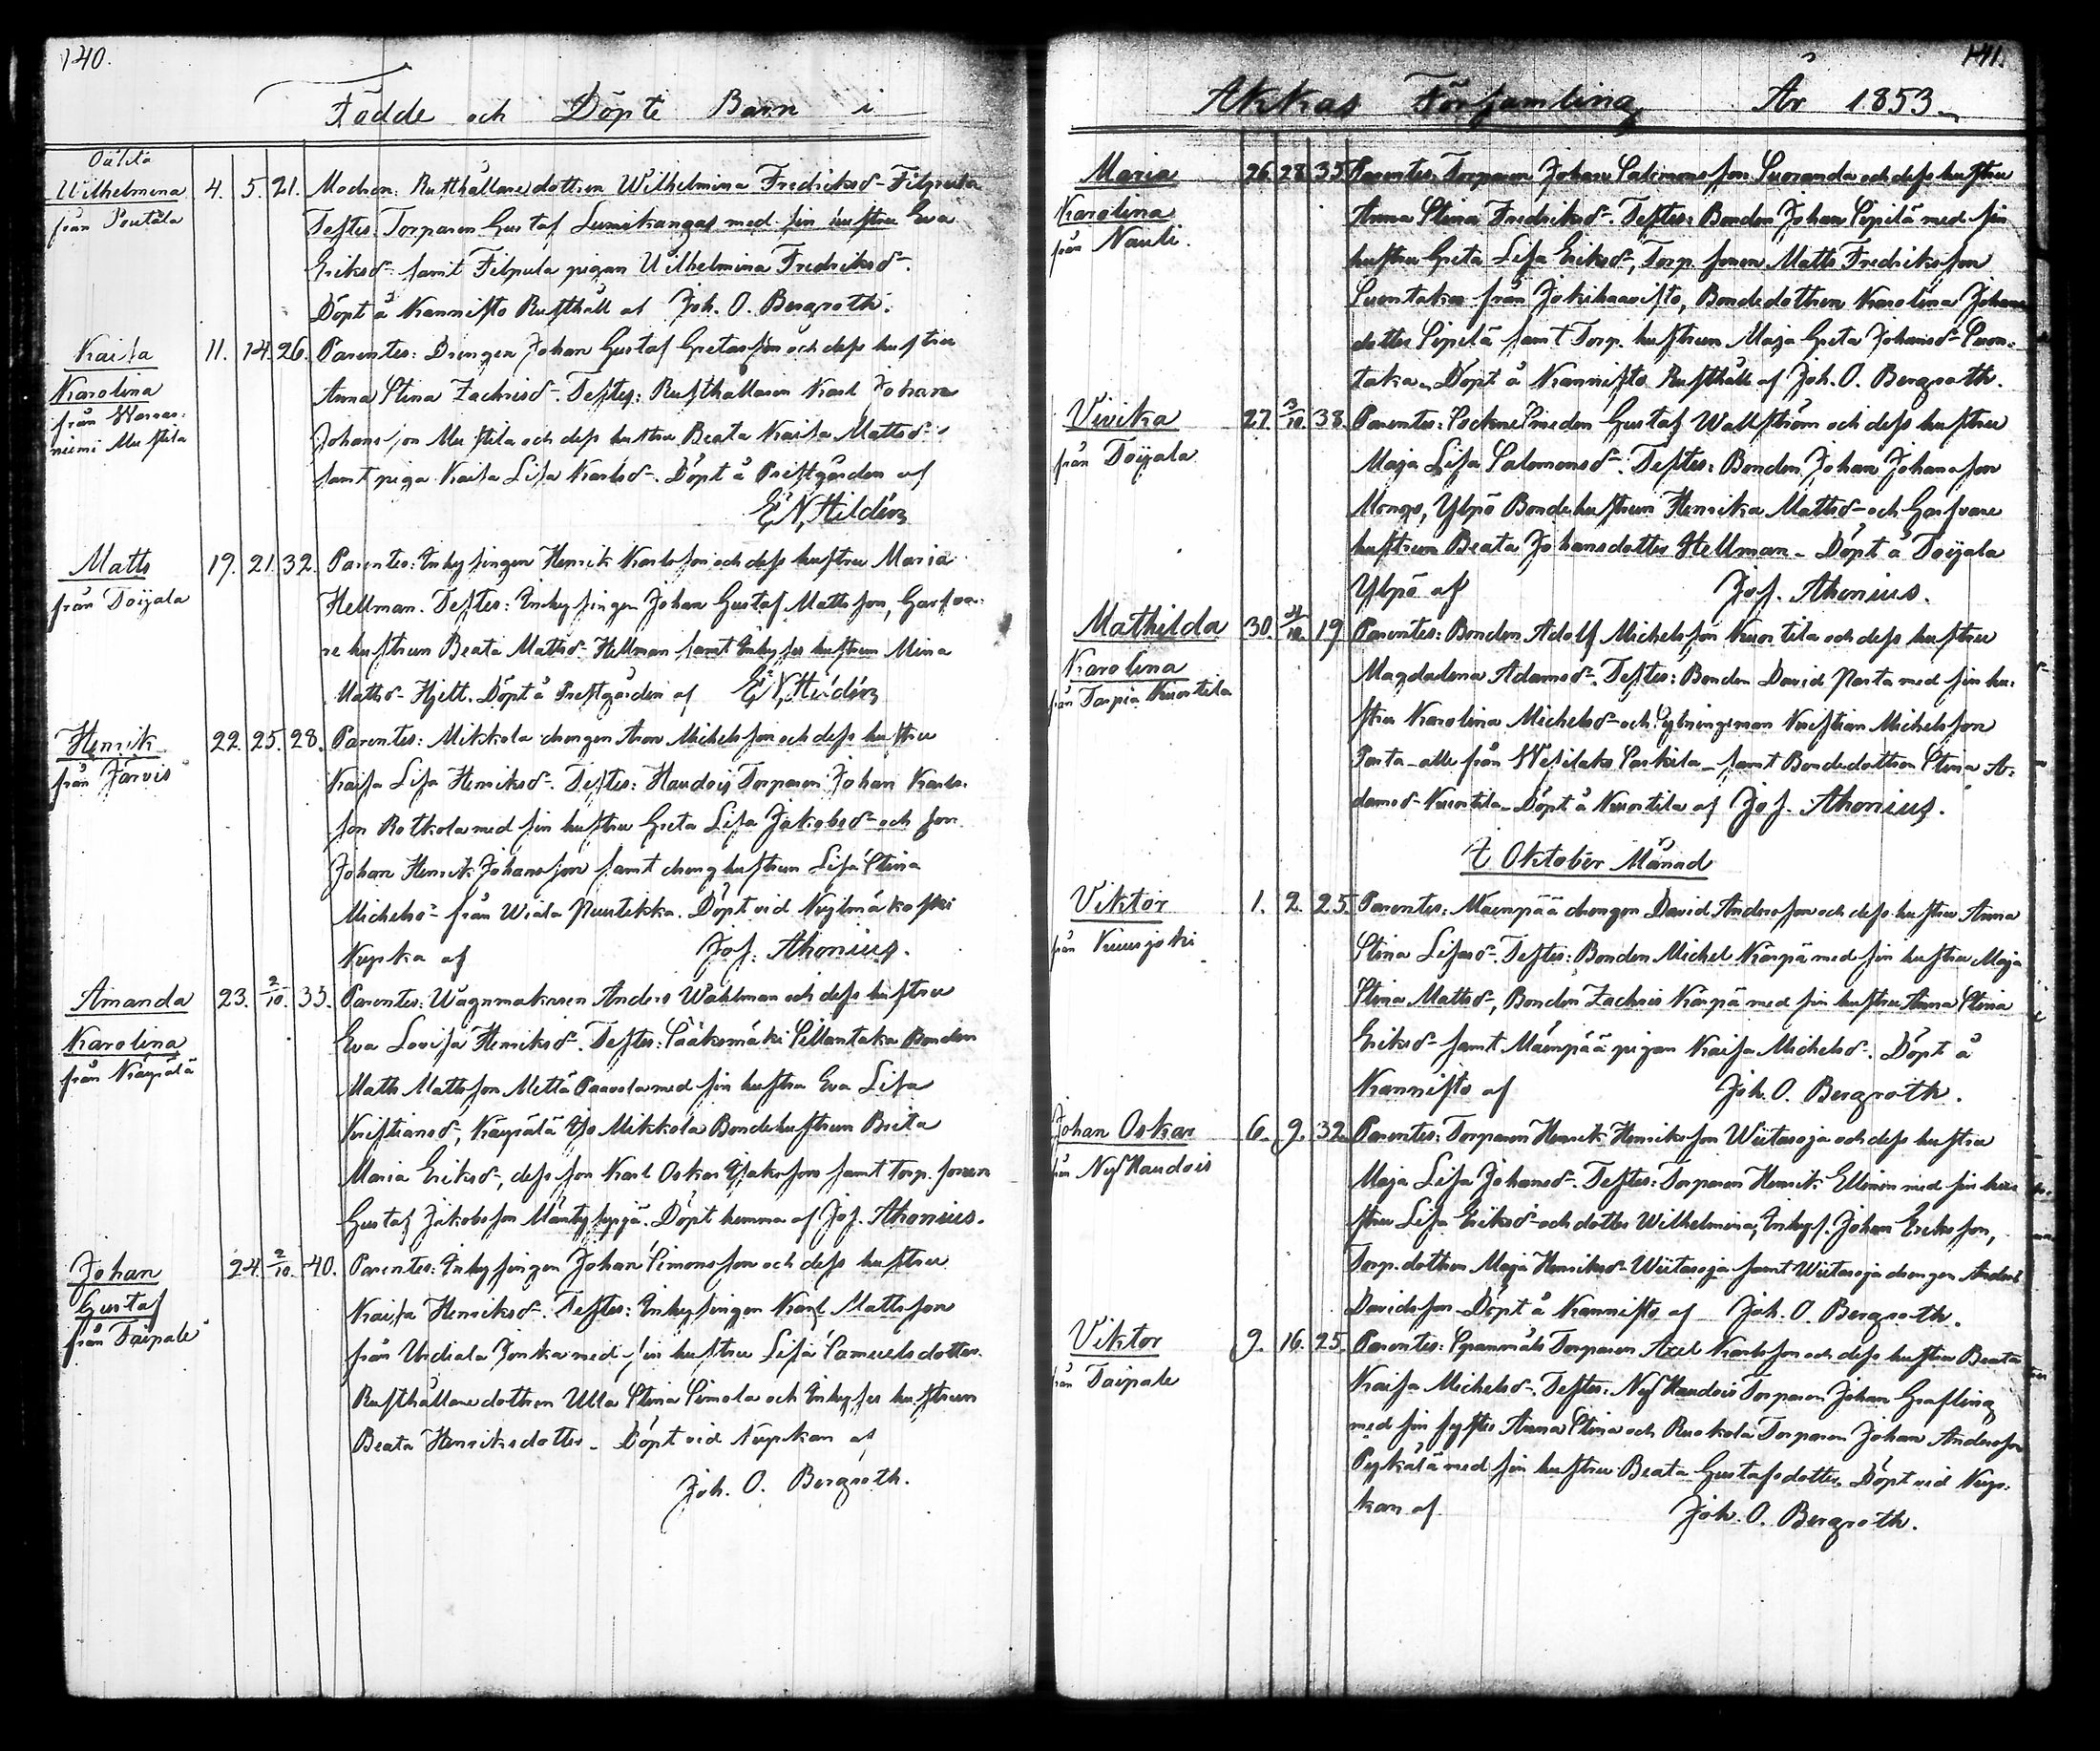 140.
Födde och Döpte Barn i
Oäkta
Wilhelmina 4. 5. 21. Modren: Rusthållaredottren Wilhelmina Fredriksd:r Filpula
från Pentälä Testes: Torparen Gustaf Lumikangas med sin hustru Eva
Eriksd:r samt Filpula pigan Wilhelmina Fredriksd:r.
Döpt å Kannisto Rusthåll af Joh. O. Bergroth.
Kaisa 11. 14. 26. Parentes: Drengen Johan Gustaf Gretasson och dess hustru
Karolina Anna Stina Zachrisd:r. Testes: Rusthållaren Karl Johan
från Warras- Johansson Mustila och dess hustru Beata Kaisa Mattsd:r
niemi Mustila samt piga Kaisa Lisa Karlsd:r. Döpt å Prestgården af
E N Hildén
Matts 19. 21. 32. Parentes: Inhysingen Henrik Karlsson och dess hustru Maria
från Toijala Hellman. Testes: Inhysingen Johan Gustaf Mattsson, Garfva-
re hustrun Beata Mattsd:r Hellman samt Inhyses hustrun Mina
Mattsd:r Hjelt. Döpt å Prestgården af E N Hildén
Henrik 22. 25. 28. Parentes: Mikkola drengen Aron Michelsson och dess hustru
från Järvis Kaisa Lisa Henriksd:r. Testes: Haudois Torparen Johan Karls-
son Rotkola med sin hustru Greta Lisa Jakobsd:r och son
Johan Henrik Johansson samt dreng hustrun Lisa Stina
Michelsd:r från Wiala Puustikka. Döpt vid Kylmäkoski
Kyrka af Jos. Ahonius.
Amanda 23. 2/10. 33. Parentes: Wagnmakaren Anders Wahlman och dess hustru
Karolina Eva Lovisa Henriksd:r. Testes: Sääksmäki Sillantaka Bonden
från Käyrälä Matts Mattsson Mettä Paavola med sin hustru Eva Lisa
Kristiansd:r, Käyrälä Yso Mikkola Bondehustrun Brita
Maria Eriksd:r, dess son Karl Oskar Isaksson samt Torp. sonen
Gustaf Jakobsson Mäntysyrjä. Döpt hemma af Jos. Ahonius.
Johan 24. 2/10. 40. Parentes: Inhysingen Johan Simonsson och dess hustru
Gustaf Kaisa Henriksd:r. Testes: Inhysingen Karl Mattsson
från Taipale från Urdiala Honka med sin hustru Lisa Samuelsdotter
Rusthållaredottren Ulla Stina Simola och Inhyses hustrun
Beata Henriksdotter. Döpt vid Kyrkan af
Joh. O. Bergroth.
141.
Akkas Församling År 1853.
Maria 26. 28. 35. Parentes: Torparen Johan Salomonsson Suoranda och dess hustru
Karolina Anna Stina Fredriksd:r. Testes: Bonden Johan Sipilä med sin
från Nauli. hustru Greta Lisa Eriksd:r, Torp. sonen Matts Fredriksson
Suontaka från Jokihaavisto, Bondedottren Karolina Johans
dotter Sipilä samt Torp. hustrun Maja Greta Johansd:r Suon-
taka. Döpt å Kannisto Rusthåll af Joh. O. Bergroth.
Vivika 27. 3/10. 38. Parentes: Sockne Smeden Gustaf Wallström och dess hustru
från Toijala Maja Lisa Salomonsd:r. Testes: Bonden Johan Johansson
Mongo, Ylpö Bondehustrun Henrika Mattsd:r och Garfvare
hustrun Beata Johansdotter Hellman. Döpt å Toijala
Ylpö af Jos. Ahonius.
Mathilda 30. 4/10. 19. Parentes: Bonden Adolf Michelsson Kuontila och dess hustru
Karolina Magdalena Adamsd:r. Testes: Bonden David Parta med sin hu-
från Tarpia Kuontila stru Karolina Michelsd:r och Sytningsman Kristian Michelsson
Parta alle från Wesilaks Laukila samt Bondedottren Stina A-
damsd:r Kuontila. Döpt å Kuontila af Jos. Ahonius.
I Oktober Månad
Viktor 1. 2. 25. Parentes: Mäenpää drengen David Andersson och dess hustru Anna
från Kuurjoki Stina Lisasd:r. Testes: Bonden Michel Kärpä med sin hustru Maja
Stina Mattsd:r, Bonden Zachris Kärpä med sin hustru Anna Stina
Eriksd:r samt Mäenpää pigan Kaisa Michelsd:r. Döpt å
Kannisto af Joh. O. Bergroth.
Johan Oskar 6. 9. 32. Parentes: Torparen Henrik Henriksson Wiitaoja och dess hustru
från Nyss Haudois Maja Lisa Johansd:r. Testes: Torparen Henrik Ellinen med sin hu-
stru Lisa Eriksd:r och dotter Wilhelmina, Inhys. Johan Eriksson,
Torp. dottren Maja Henriksd:r Wiitaoja samt Wiitaoja drengen Anders
Davidsson. Döpt å Kannisto af Joh. O. Bergroth.
Viktor 9. 16. 25. Parentes: Spannmåls Torparen Axel Karlsson och dess hustru Beata
från Taipale Kaisa Michelsd:r. Testes: Nyss Haudois Torparen Johan Grafling
med sin syster Anna Stina och Ruokola Torparen Johan Andersson
Pykälä med sin hustru Beata Gustafsdotter. Döpt vid Kyr-
kan af Joh. O. Bergroth.